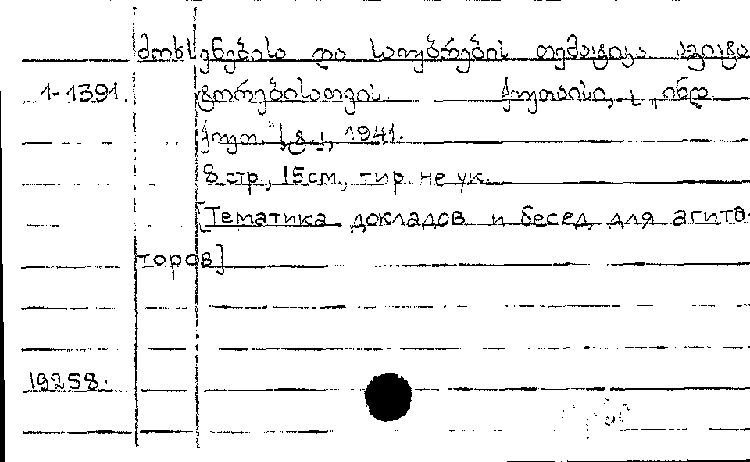 მოხსენებისა და საუბრების თემატიკა აგიტა
1-1391. ტორებისათვის ქუთაისი,
ქუთ. 1941.
8 стр., 15см., тир. не ук.
[Тематика докладов и бесед для агита-
торов]
19258.